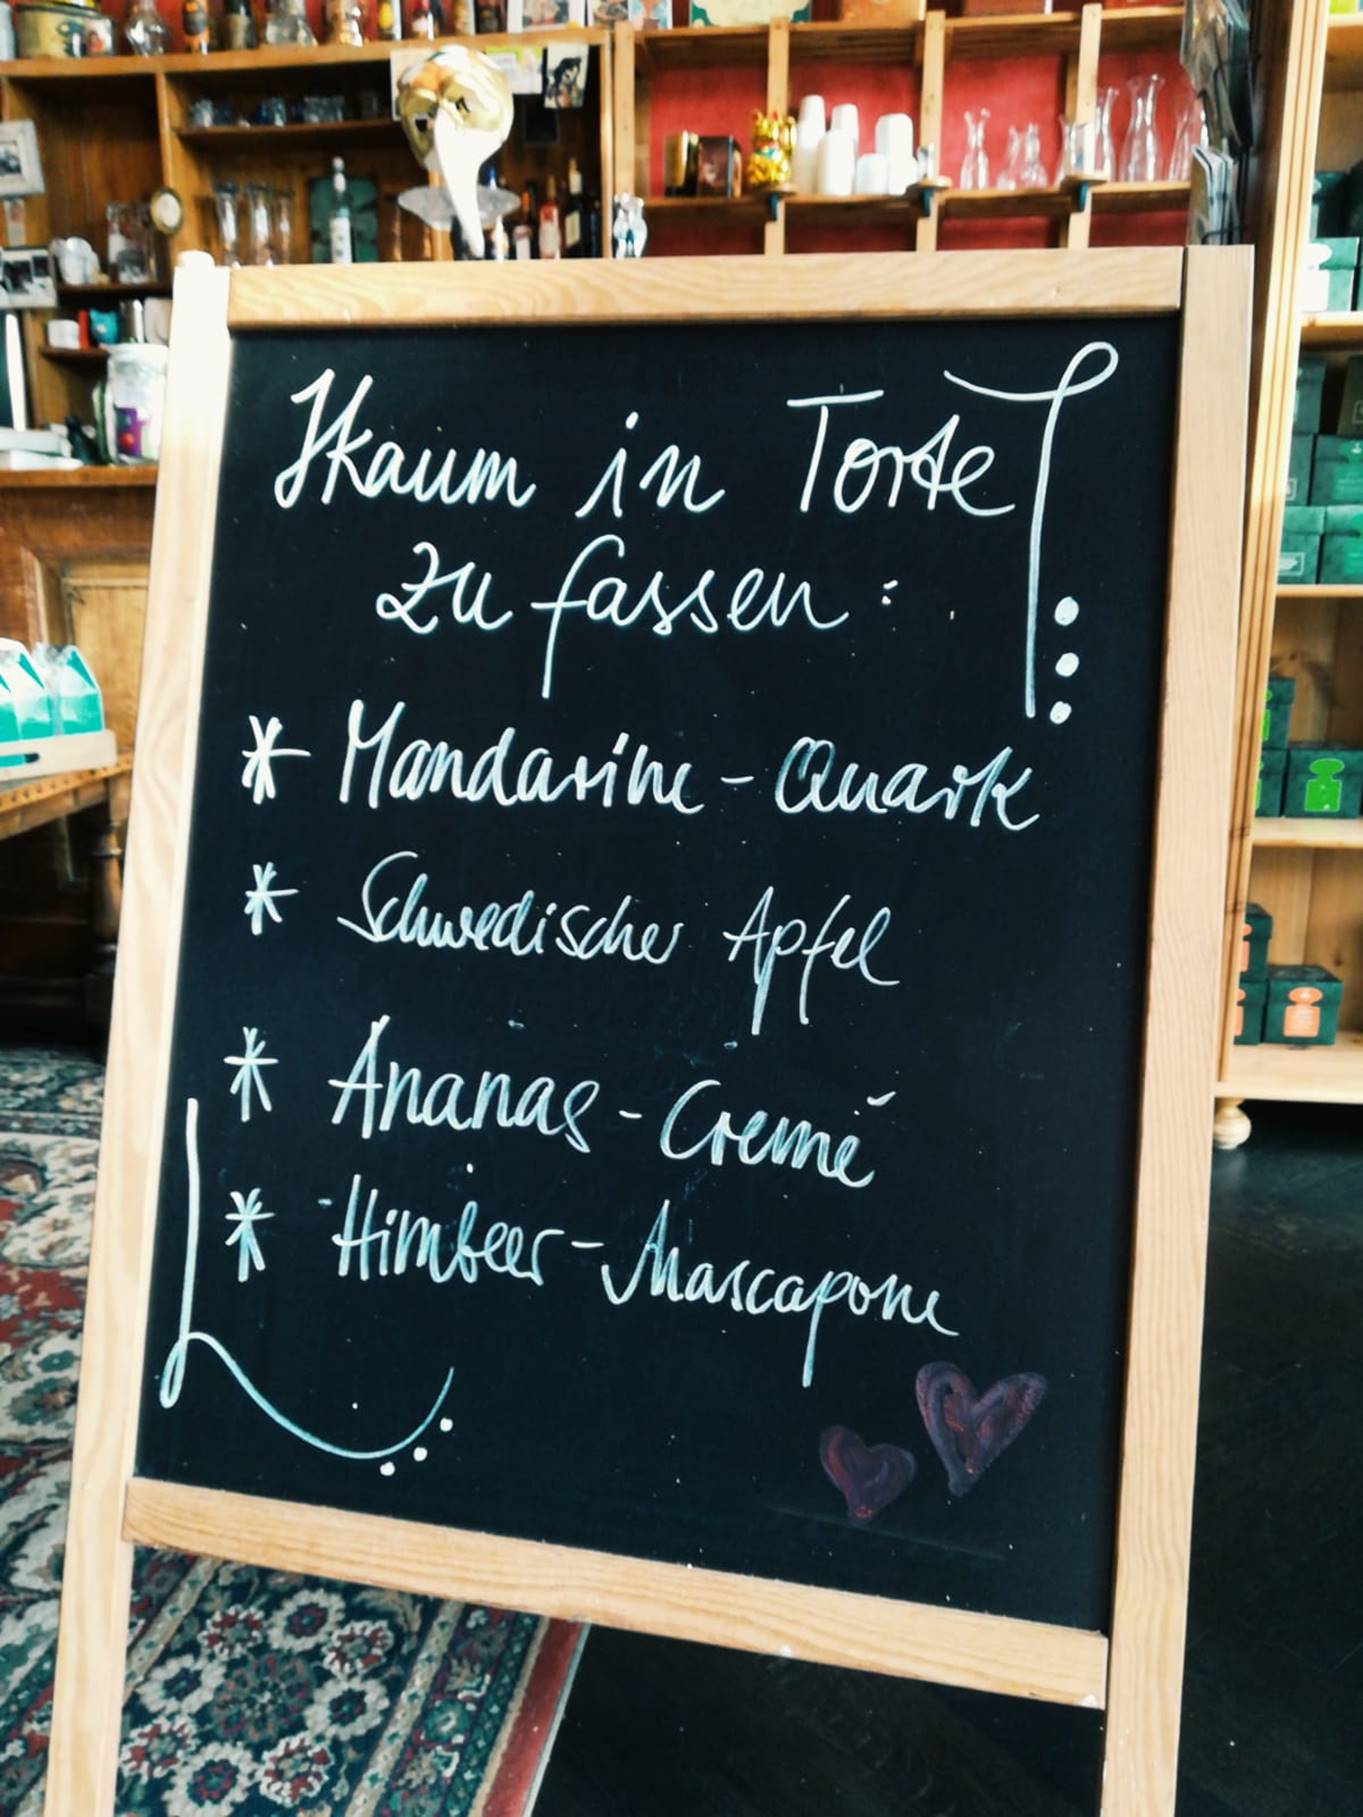 Kaum in Torte
zu fassen:
* Mandarine-Quark
* Schwedischer Apfel
* Ananas-Cremé
* Himbeer-Mascapone